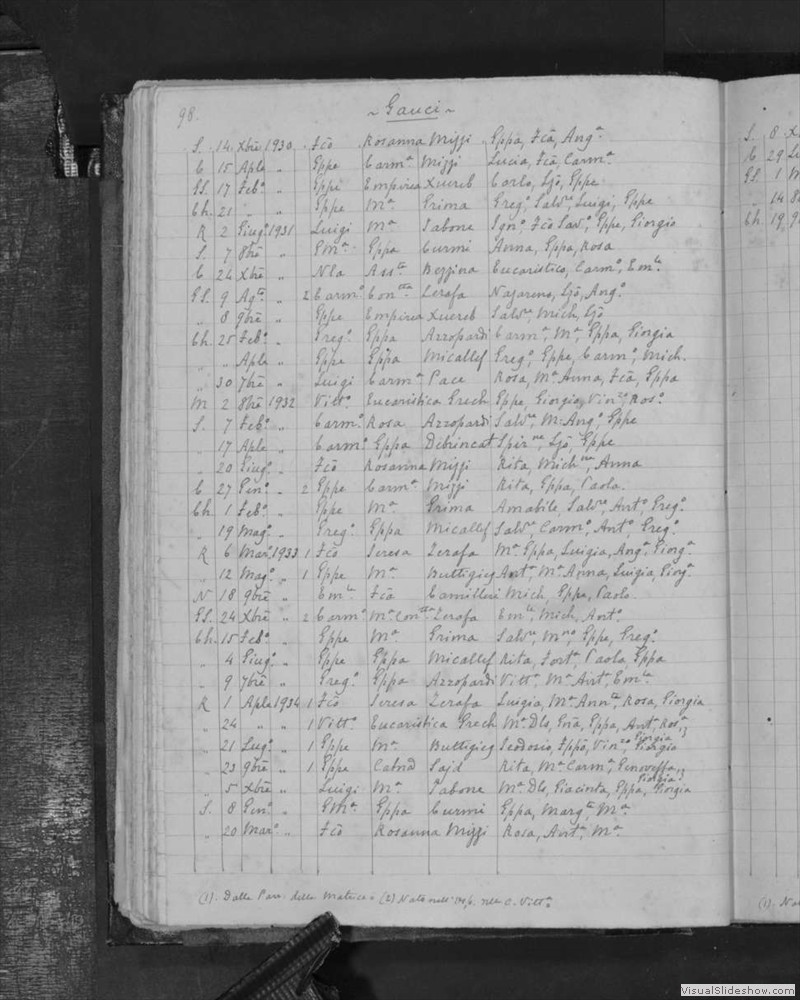 98. ~ Gauci ~
S. 14 Xbre 1930 Fcõ Rosanna Mizzi Eppa, Fcã, Angª
C 15 Aple „ Eppe Carmª Mizzi Lucia, Fcã, Carmª
Gs. 17 Febº „ Eppe Empirea Xuereb Carlo, Sjõ, Eppe
Ch. 21 „ „ Eppe Mª Grima Gregº, Salvʳᵉ, Luigi, Eppe
R 2 Giugº 1931 Luigi Mª Tabone Ignº, Fcõ Savº, Eppe, Giorgio
S. 7 8bre „ Eppa Curmi Anna, Eppa, Rosa
C 24 Xbre „ Nla Assᵗᵃ Bezzina Eucaristico, Carmº, Emˡᵉ
Gs. 9 Agᵗᵒ „ 2 Carmº Conᵗᵗᵃ Zerafa Nazareno, Sjõ, Angº
„ 8 9bre „ Eppe Empirea Xuereb Salvʳᵉ, Mich, Sjõ
Ch. 25 Febº „ Gregº Eppa Azzopardi Carmª, Mª, Eppa, Giorgia
„ „ Aple „ Eppe Eppa Micallef Gregº, Eppe, Carmº, Mich.
„ 30 7bre „ Luigi Carmª Pace Rosa, Mª Anna, Fcã, Eppa
M 2 8bre 1932 Vittº Eucaristica Grech Eppe, Giorgio, Vinᶻᵒ, Rosº
S. 7 Febº „ Carmº Rosa Azzopardi Salvʳᵉ, M. Angº, Eppe
„ 17 Aple „ Carmº Eppa Debrincat Spirⁿᵉ, Sjõ, Eppe
„ 20 Giugº „ Fcõ Rosanna Mizzi Rita, Michⁿᵃ, Anna
C 27 Genº „ 2 Eppe Carmª Mizzi Rita, Eppa, Paola
Ch. 1 Febº „ Eppe Mª Grima Amabile, Salvʳᵉ, Antº, Gregº
„ 19 Magº „ Gregº Eppa Micallef Salvʳᵉ, Carmº, Antº, Gregº
R 6 Marº 1933 1 Fcõ Teresa Zerafa Mª Eppa, Luigia, Angª, Giorgª
„ 12 Magº „ 1 Eppe Mª Buttigieg Antª, Mª Anna, Luigia, Giorgª
N 18 9bre „ Emˡᵉ Fcã Camilleri Mich, Eppe, Paolo
Gs. 24 Xbre „ 2 Carmº Mª Conᵗᵗᵃ Zerafa Emˡᵉ, Mich, Antº
Ch. 15 Febº „ Eppe Mª Grima Salvʳᵉ, Eppe, Gregº
„ 4 Giugº „ Eppe Eppa Micallef Rita, Fortª, Paola, Eppa
„ 9 7bre „ Gregº Eppa Azzopardi Vittª, Mª Antª, Emˡᵃ
R 1 Aple 1934 1 Fcõ Teresa Zerafa Luigia, Mª Annᵗᵃ, Rosa, Giorgia
„ 24 „ „ 1 Vittº Eucaristica Grech Mª Dlo, Gnã, Eppa, Antª, Rosª,
„ 21 Lugº „ 1 Eppe Mª Buttigieg Teodosio, Vinᶻᵒ, Giorgia
„ 23 9bre „ 1 Eppe Catnã Said Rita, Mª Carmª, Genoveffa,
„ 5 Xbre „ Luigi Mª Tabone Mª Dlo, Giacinta, Eppa, Giorgia
S. 8 Genº „ Eppa Curmi Eppa, Margᵗᵃ, Mª
„ 20 Marº „ Fcõ Rosanna Mizzi Rosa, Antª, Mª
(1). Dalla Parr. della Matrice = (2) Nato nell' nella C. Vittª
S. 8 X
C 29 Lu
Gs. 1 M
„ 14 8
Ch 19 9
(1). Na
VisualSlideshow.com